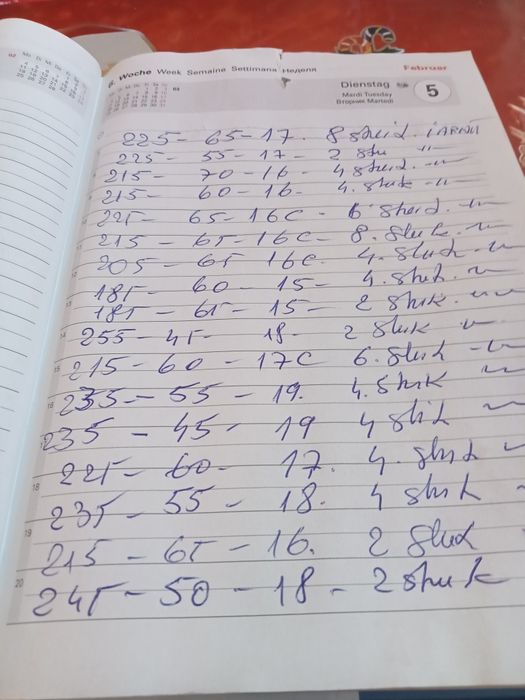 6. Woche Week Semaine Settimana Неделя
Februar
Dienstag
Mardi Tuesday
Вторник Martedì
5
225 - 65 - 17. 8
225 - 55 - 17 - 2 "
215 - 70 - 16 - 4
215 - 60 - 16 - 4. Stuk
225 - 65 - 16C - 6
215 - 65 - 16C - 8. Stuk
205 - 65 16C. 4.
185 - 60 - 15 - 4.
185 - 65 - 15 - 2 Stuk.
255 - 45 - 18 - 2 Stuk
215 - 60 - 17C 6.
235 - 55 - 19. 4. Stuk
235 - 45 - 19 4
225 - 60 - 17. 4.
235 - 55 - 18. 4 Stuk
215 - 65 - 16. 2
245 - 50 - 18 - 2 Stuk